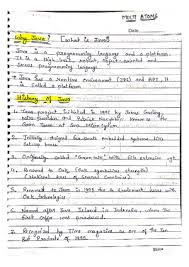 MULTI ATOMS
Date
Why Java? (what is Java?)
Java is a programming language and a platform.
It is a high level, robust, object-oriented and
secure programming language.
Java has a runtime environment (JRE) and API, it
is called a platform
History of Java
1. Java project initiated in 1991 by James Gosling,
Mike Sheridan and Patrick Naughton
2. Initially designed for small embedded systems like
3. Originally called "Greentalk" with file extension .gt
4. Renamed to Oak
5. Renamed to Java in 1995 due to trademark issue with
Oak technologies
6. Named after Java Island in Indonesia, where the
first coffee was produced.
7. Recognized by Time magazine as one of the Ten
Best Products of 1995.